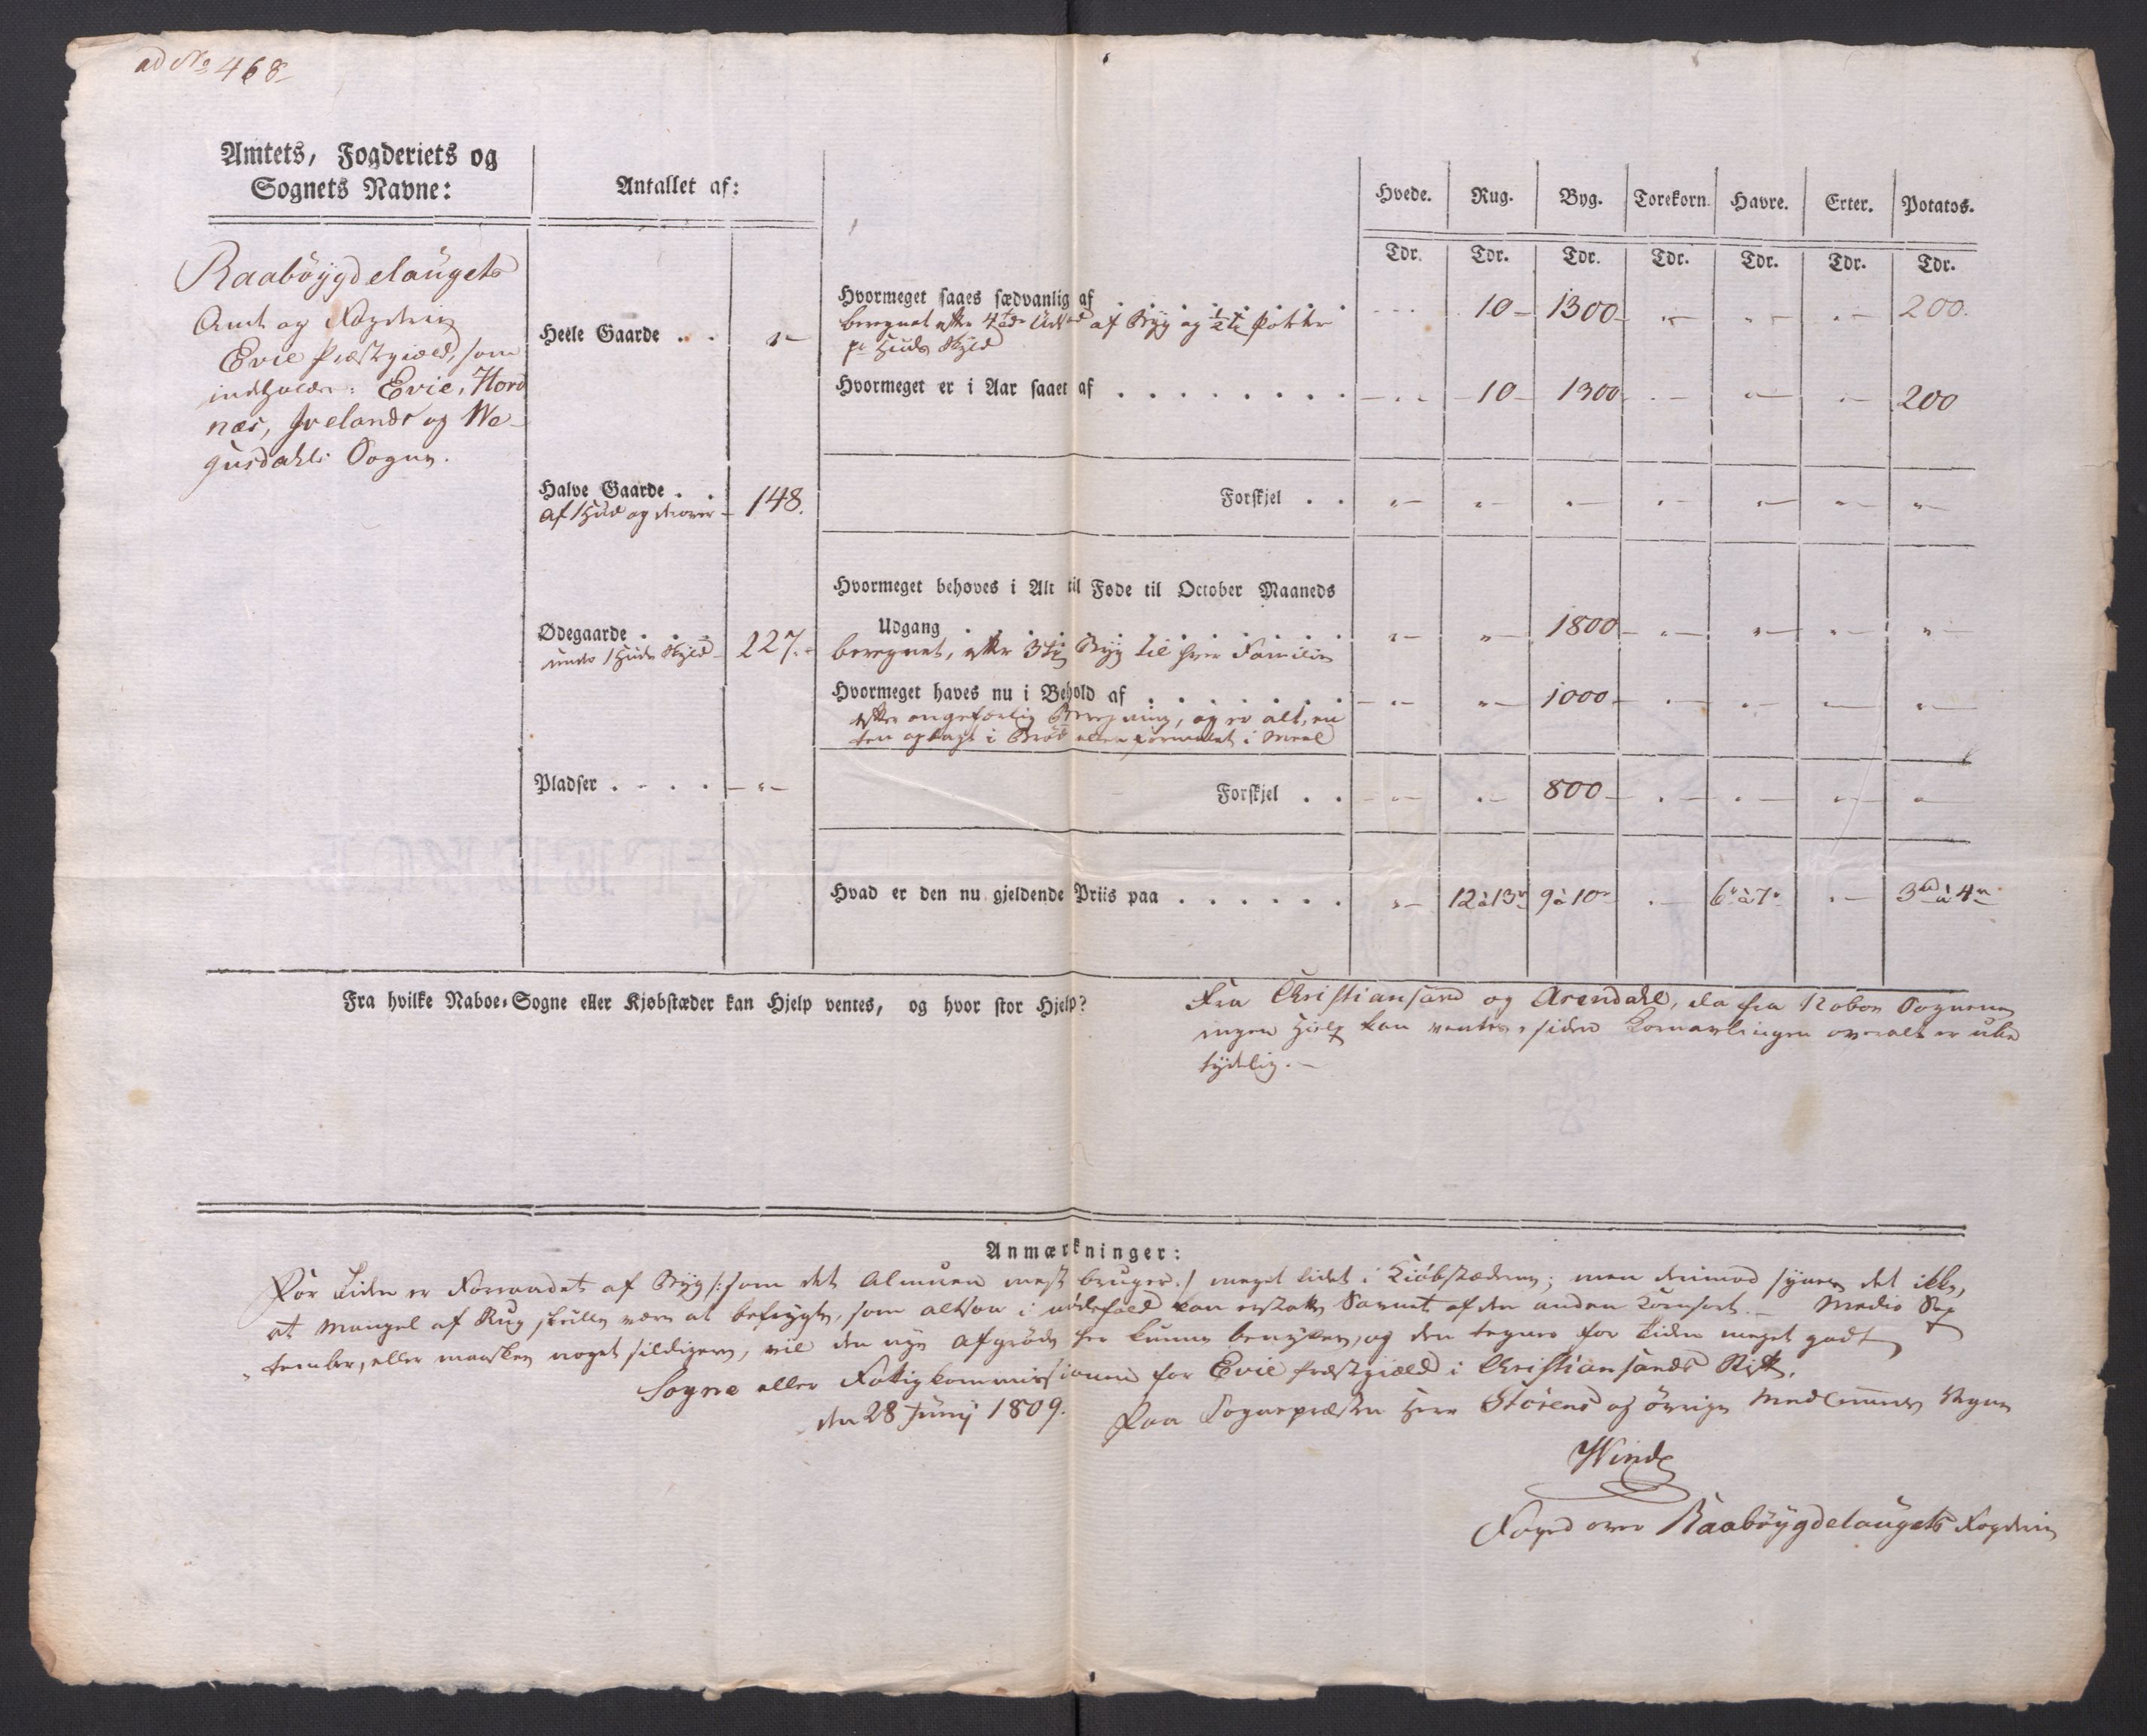 ad No 468
Amtets, Fogderiets og
Sognets Navne:
Antallet af:
Hvede. Rug. Byg. Torekorn. Havre. Erter. Potatos.
Tdr. Tdr. Tdr. Tdr. Tdr. Tdr. Tdr.
Raaböÿgdelaugets
Amt og Fogderie
Evie Præstegiæld, som
indeholder: Evie, Horn
næs, Ivelands og We-
gusdahls Sogne.
Heele Gaarde . . "
Halve Gaarde . . 148.
af 1 Hud og derover
Ødegaarde . . . 227.
under 1 Huds Skyld
Pladser . . . . "
Hvormeget saaes sædvanlig af . . . 10 1300 200.
beregnet efter af Byg og 1/2 Potater
pr Huds Skyld
Hvormeget er i Aar saaet af . . . . . . . . 10 1300 200
Forskjel . .
Hvormeget behøves i Alt til Føde til October Maaneds
Udgang . . . . . . . . 1800
beregnet, efter 3 Byg til hver Familie
Hvormeget haves nu i Behold af . . . . . . . 1000
efter ongefærlig Beregning, og er alt, en
ten opbagt i Brød eller formalet i Meel
Forskjel . . 800
Hvad er den nu gjeldende Priis paa . . . . . . 12 à 13 9 à 10 6 à 7 3 à 4
Fra hvilke Naboe-Sogne eller Kjøbstæder kan Hjelp ventes, og hvor stor Hjelp?
Fra Christiansand og Arendahl, da fra Naboe Sognene
ingen Hielp kan ventes, siden Kornavlingen overalt er ube
tydelig.
Anmærkninger:
For Tiden er Forraadet af Byg /: som det Almuen mest bruger :/ meget lidet i Kiöbstæderne; men derimod synes det ikke,
at Mangel af Rug skulle være at befrygte, som altsaa i nödsfald kan erstatte Savnet af den anden Kornsort. - Medio Sep
tember, eller maaskee noget sildigere, vil den nye Afgröde her kunne benyttes, og den tegner for Tiden meget godt
Sogne eller Fattigkommissionen for Evie Præstegiæld i Christiansands Stift,
den 28 Junÿ 1809.
Paa Sognepræsten Herr Störens og övrige Medlemmers Vegne
Winde
Foged over Raabÿgdelaugets Fogderie